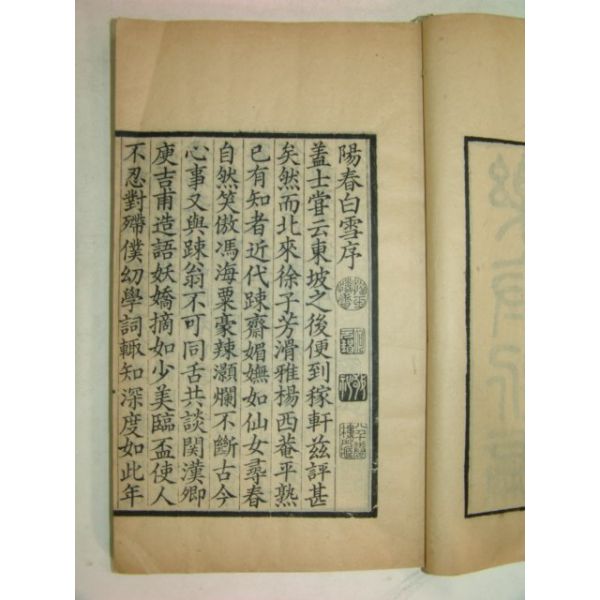 陽春白雪序
蓋士甞云東坡之後便到稼軒茲評甚
矣然而北來徐子芳滑雅楊西菴平熟
已有知者近代踈齋媚嫵如仙女尋春
自然笑傲馮海粟豪辣灝爛不斷古今
心事又與踈翁不可同舌共談関漢卿
庾吉甫造語妖嬌摘如少美臨盃使人
不忍對殢僕幼學詞輙知深度如此年